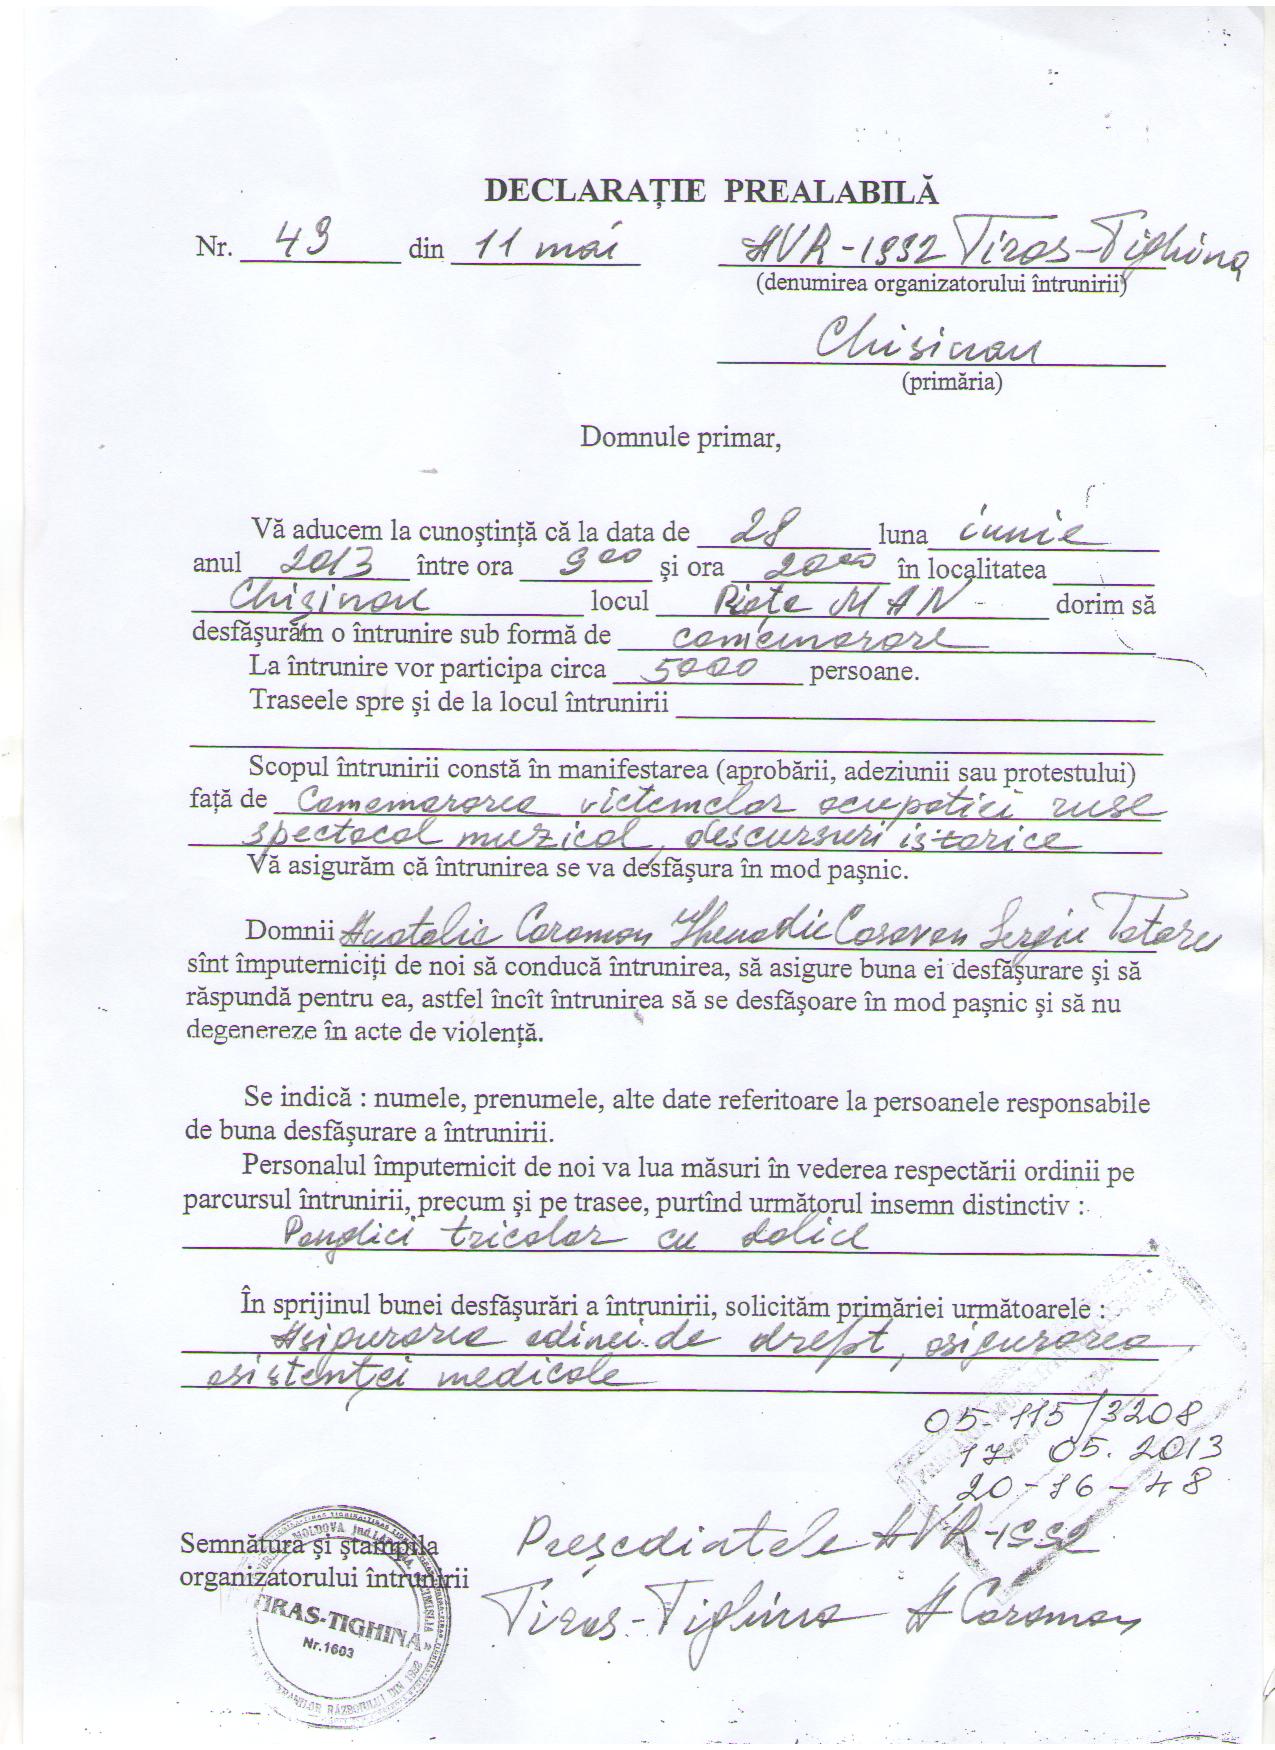 DECLARAȚIE PREALABILĂ
Nr. 43 din 11 mai AVR-1992 Tiras-Tighina
(denumirea organizatorului întrunirii)
Chisinau
(primăria)
Domnule primar,
Vă aducem la cunoştinţă că la data de 28 luna iunie
anul 2013 între ora 9 00 şi ora 20 00 în localitatea
Chişinau locul Piața MAN - dorim să
desfăşurăm o întrunire sub formă de comemorare
La întrunire vor participa circa 5000 persoane.
Traseele spre şi de la locul întrunirii
Scopul întrunirii constă în manifestarea (aprobării, adeziunii sau protestului)
faţă de Comemorarea victemelor ocupatiei ruse
spectacol muzical, descursuri istorice
Vă asigurăm că întrunirea se va desfăşura în mod paşnic.
Domnii Anatolie Caraman Ghenadie Casovan Sergiu Tataru
sînt împuterniciţi de noi să conducă întrunirea, să asigure buna ei desfăşurare şi să
răspundă pentru ea, astfel încît întrunirea să se desfăşoare în mod paşnic şi să nu
degenereze în acte de violenţă.
Se indică : numele, prenumele, alte date referitoare la persoanele responsabile
de buna desfăşurare a întrunirii.
Personalul împuternicit de noi va lua măsuri în vederea respectării ordinii pe
parcursul întrunirii, precum şi pe trasee, purtînd următorul insemn distinctiv :
Panglici tricolor cu dolie
În sprijinul bunei desfăşurări a întrunirii, solicităm primăriei următoarele :
Asigurarea odinei de drept, asigurarea
asistenţei medicale
05-115/3208
17 05. 2013
20-16-48
Semnătura şi ştampila
organizatorului întrunirii
Preşediatele AVR-1992
Tiras-Tighina A Caraman
TIRAS-TIGHINA»
Nr.1603
MOLDOVA
RĂZBOIULUI DIN 1992